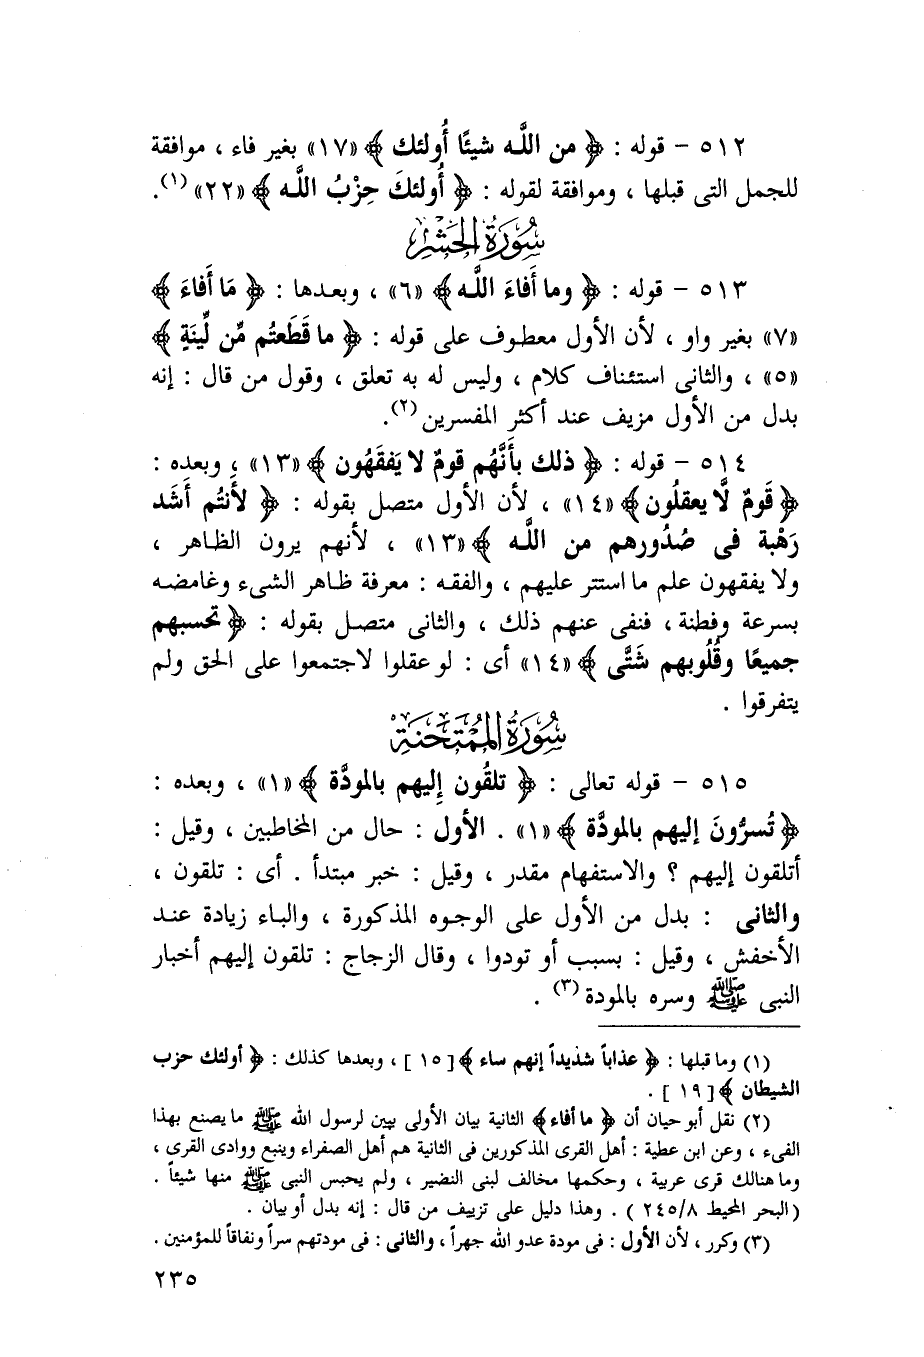 ٥١٢ – قوله : ﴿ من اللَّه شيئًا أُولئك ﴾ «١٧» بغير فاء ، موافقة
للجمل التى قبلها ، وموافقة لقوله : ﴿ أُولئكَ حِزْبُ اللَّه ﴾ «٢٢» (١).
سُورَةُ الحَشْرِ
٥١٣ – قوله : ﴿ وما أَفاءَ اللَّه ﴾ «٦» ، وبعدها : ﴿ مَا أَفاءَ ﴾
«٧» بغير واو ، لأن الأول معطوف على قوله : ﴿ ما قَطَعتُم مِّن لِّينَةٍ ﴾
«٥» ، والثانى استئناف كلام ، وليس له به تعلق ، وقول من قال : إنه
بدل من الأول مزيف عند أكثر المفسرين (٢).
٥١٤ – قوله : ﴿ ذلك بأَنَّهُم قومٌ لا يَفقَهُون ﴾ «١٣» ، وبعده :
﴿ قَومٌ لَّا يعقلُون ﴾ «١٤» ، لأن الأول متصل بقوله : ﴿ لأَنتُم أَشَد
رَهْبة فى صُدُورهم من اللَّه ﴾ «١٣» ، لأنهم يرون الظاهر ،
ولا يفقهون علم ما استتر عليهم ، والفقه : معرفة ظاهر الشىء وغامضه
بسرعة وفطنة ، فنفى عنهم ذلك ، والثانى متصل بقوله : ﴿ تحسبهم
جميعًا وقُلُوبهم شَتَّى ﴾ «١٤» أى : لو عقلوا لاجتمعوا على الحق ولم
يتفرقوا .
سُورَةُ المُمْتَحَنَةِ
٥١٥ – قوله تعالى : ﴿ تلقُون إِليهم بالمودَّة ﴾ «١» ، وبعده :
﴿ تُسرُّونَ إليهم بالمودَّة ﴾ «١» . الأول : حال من المخاطبين ، وقيل :
أتلقون إليهم ؟ والاستفهام مقدر ، وقيل : خبر مبتدأ . أى : تلقون ،
والثانى : بدل من الأول على الوجوه المذكورة ، والباء زيادة عند
الأخفش ، وقيل : بسبب أو تودوا ، وقال الزجاج : تلقون إليهم أخبار
النبى ﷺ وسره بالمودة (٣) .
(١) وما قبلها : ﴿ عذاباً شديداً إنهم ساء ﴾ [ ١٥ ] ، وبعدها كذلك : ﴿ أولئك حزب
الشيطان ﴾ [ ١٩ ] .
(٢) نقل أبو حيان أن ﴿ ما أفاء ﴾ الثانية بيان الأولى يبين لرسول الله ﷺ ما يصنع بهذا
الفىء ، وعن ابن عطية : أهل القرى المذكورين فى الثانية هم أهل الصفراء وينبع ووادى القرى ،
وما هنالك قرى عربية ، وحكمها مخالف لبنى النضير ، ولم يحبس النبى ﷺ منها شيئاً .
( البحر المحيط ٢٤٥/٨ ) . وهذا دليل على تزييف من قال : إنه بدل أو بيان .
(٣) وكرر ، لأن الأول : فى مودة عدو الله جهراً ، والثانى : فى مودتهم سراً ونفاقاً للمؤمنين .
٢٣٥